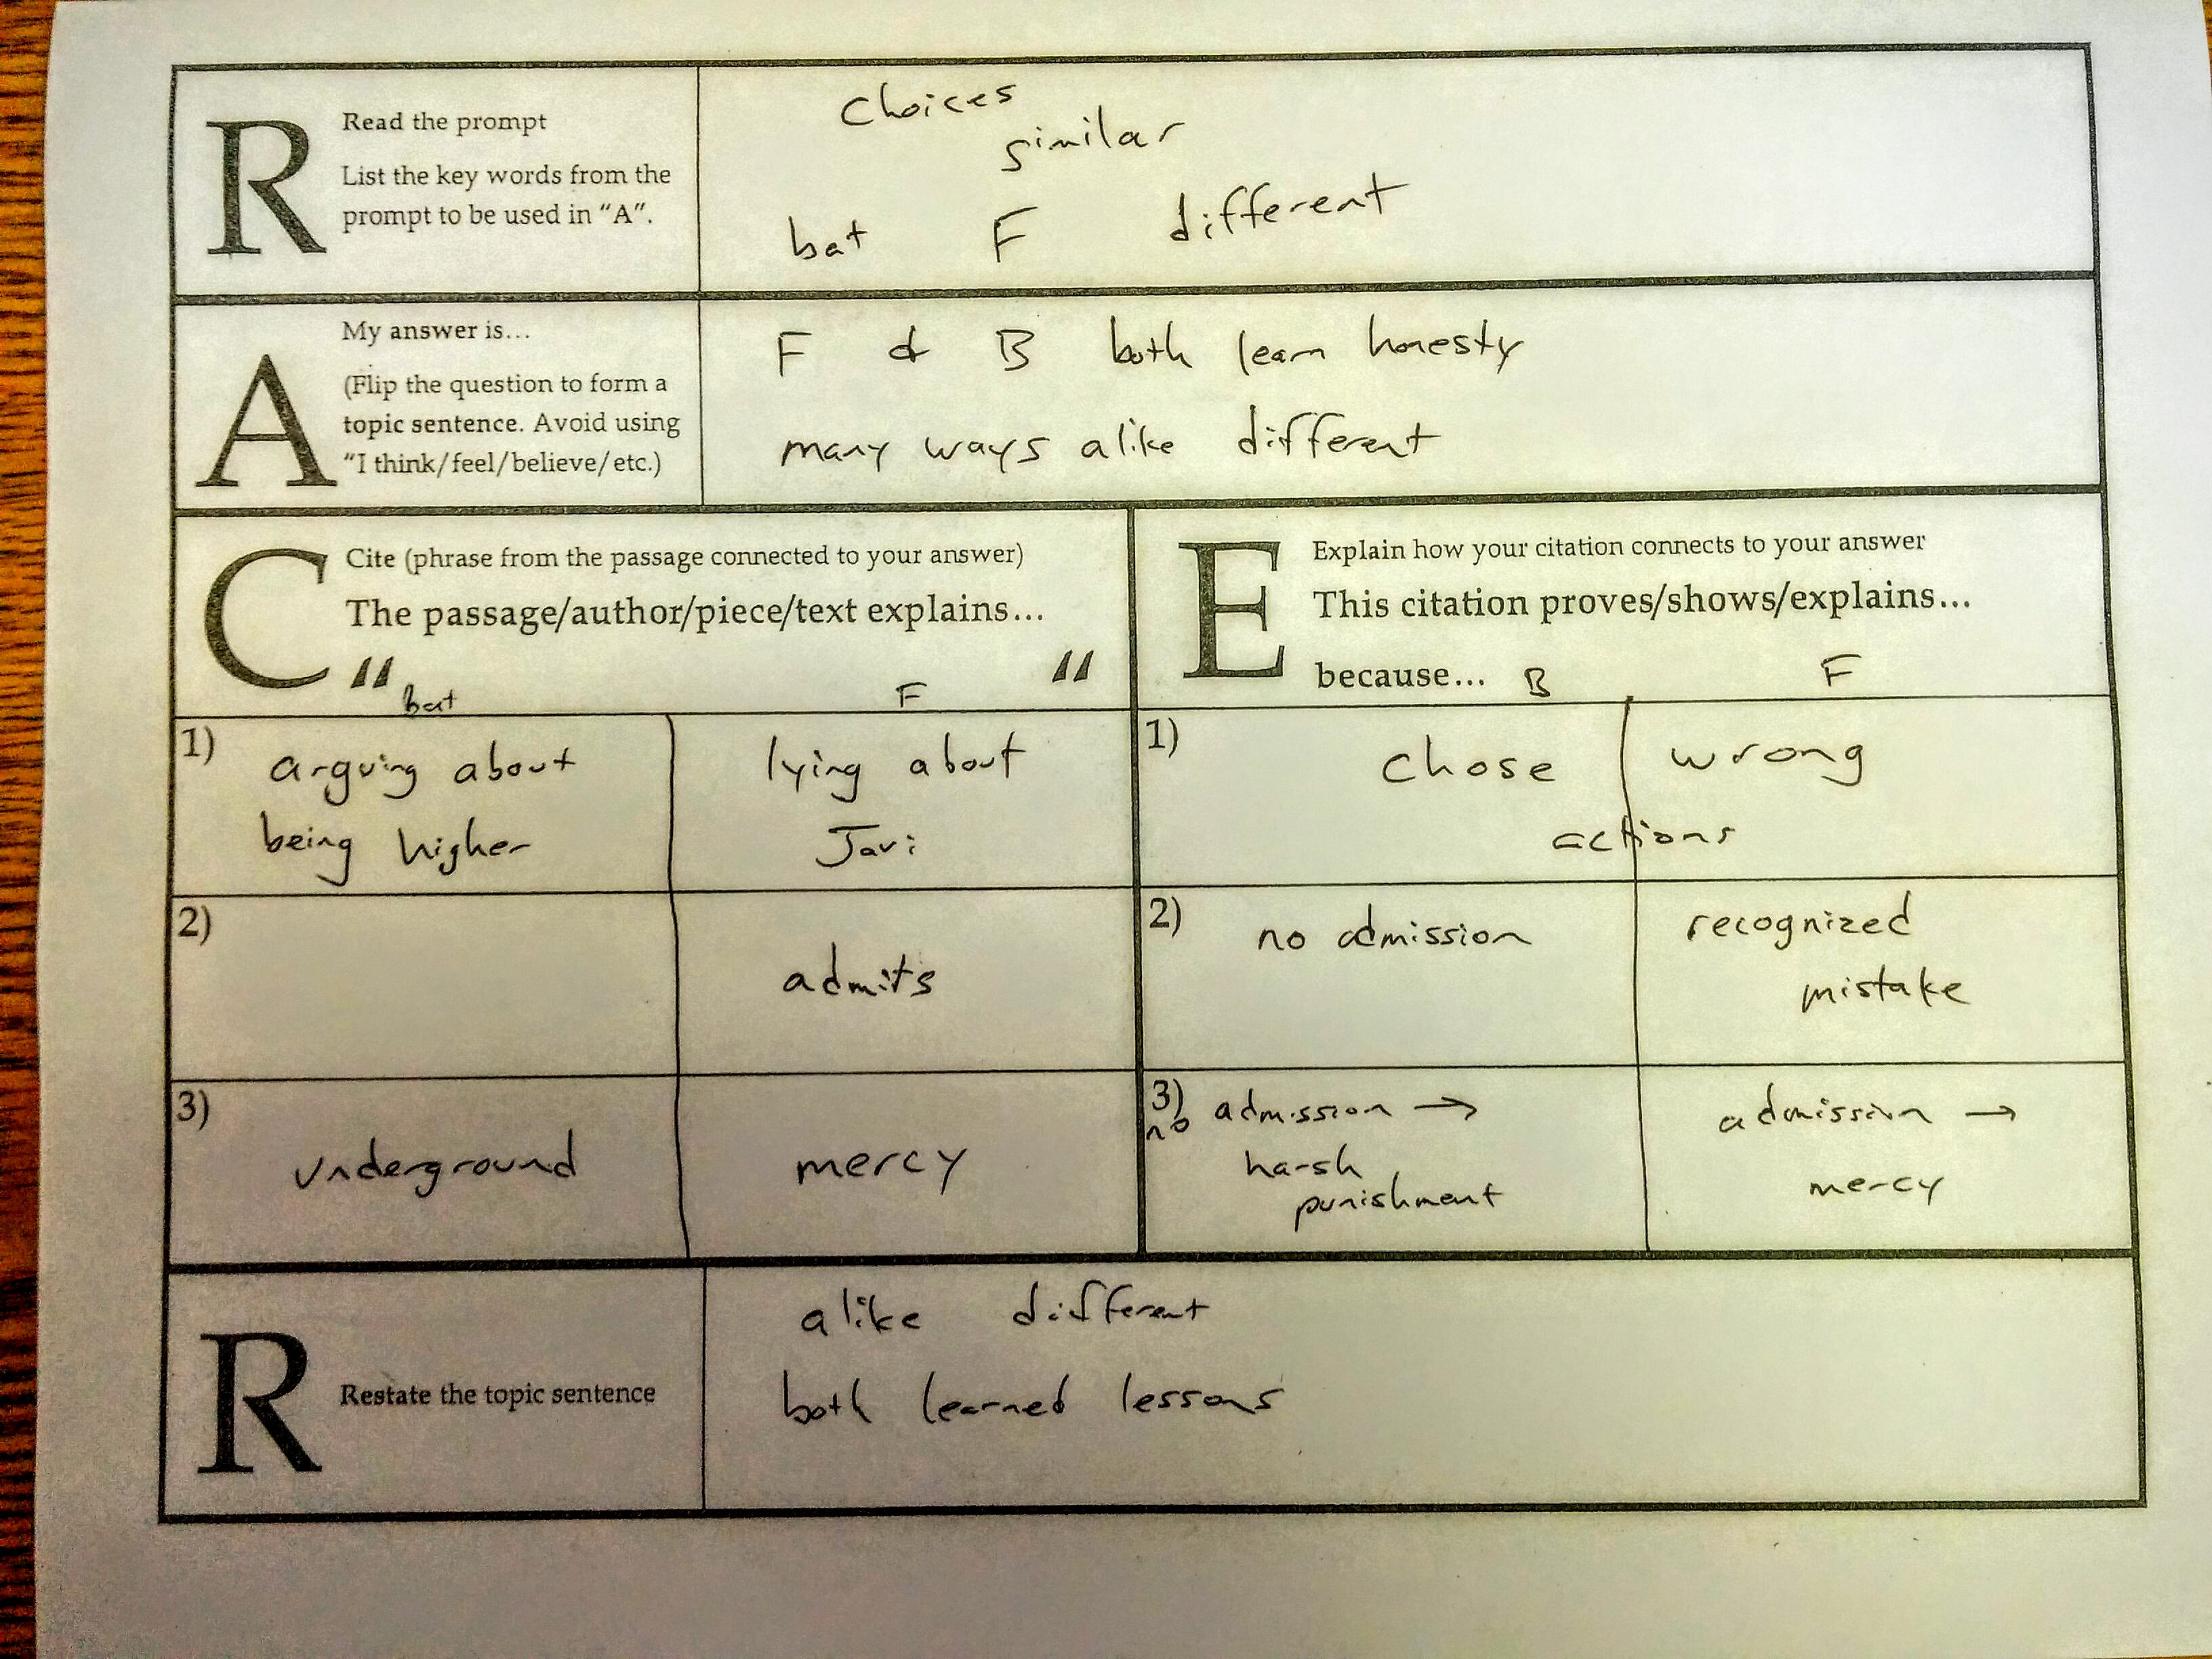 R
Read the prompt
List the key words from the
prompt to be used in “A”.
Choices
similar
bat F different
A
My answer is...
(Flip the question to form a
topic sentence. Avoid using
“I think/feel/believe/etc.)
F & B both learn honesty
many ways alike different
C
Cite (phrase from the passage connected to your answer)
The passage/author/piece/text explains...
" "
bat F
E
Explain how your citation connects to your answer
This citation proves/shows/explains...
because... B F
1) arguing about
being higher
lying about
Javi
1) chose wrong
actions
2)
admits
2) no admission
recognized
mistake
3)
underground
mercy
3) admission →
no
harsh
punishment
admission →
mercy
R
Restate the topic sentence
alike different
both learned lessons